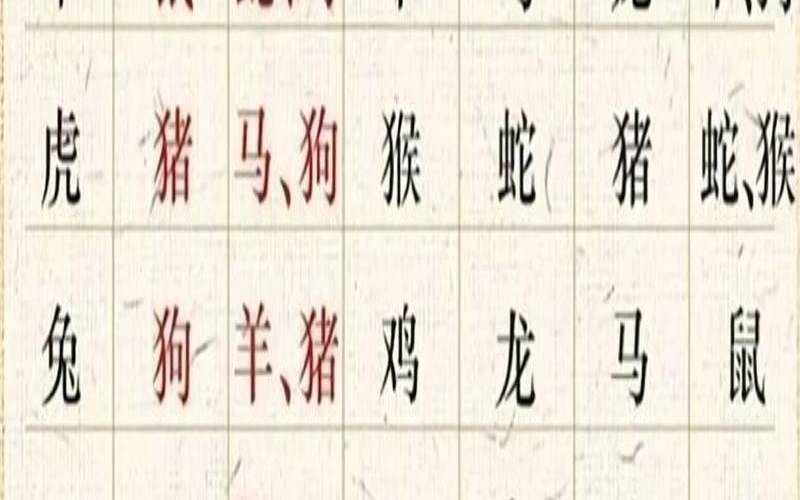 虎 猪 马、狗 猴 蛇 猪 蛇、猴
兔 狗 羊、猪 鸡 龙 马 鼠